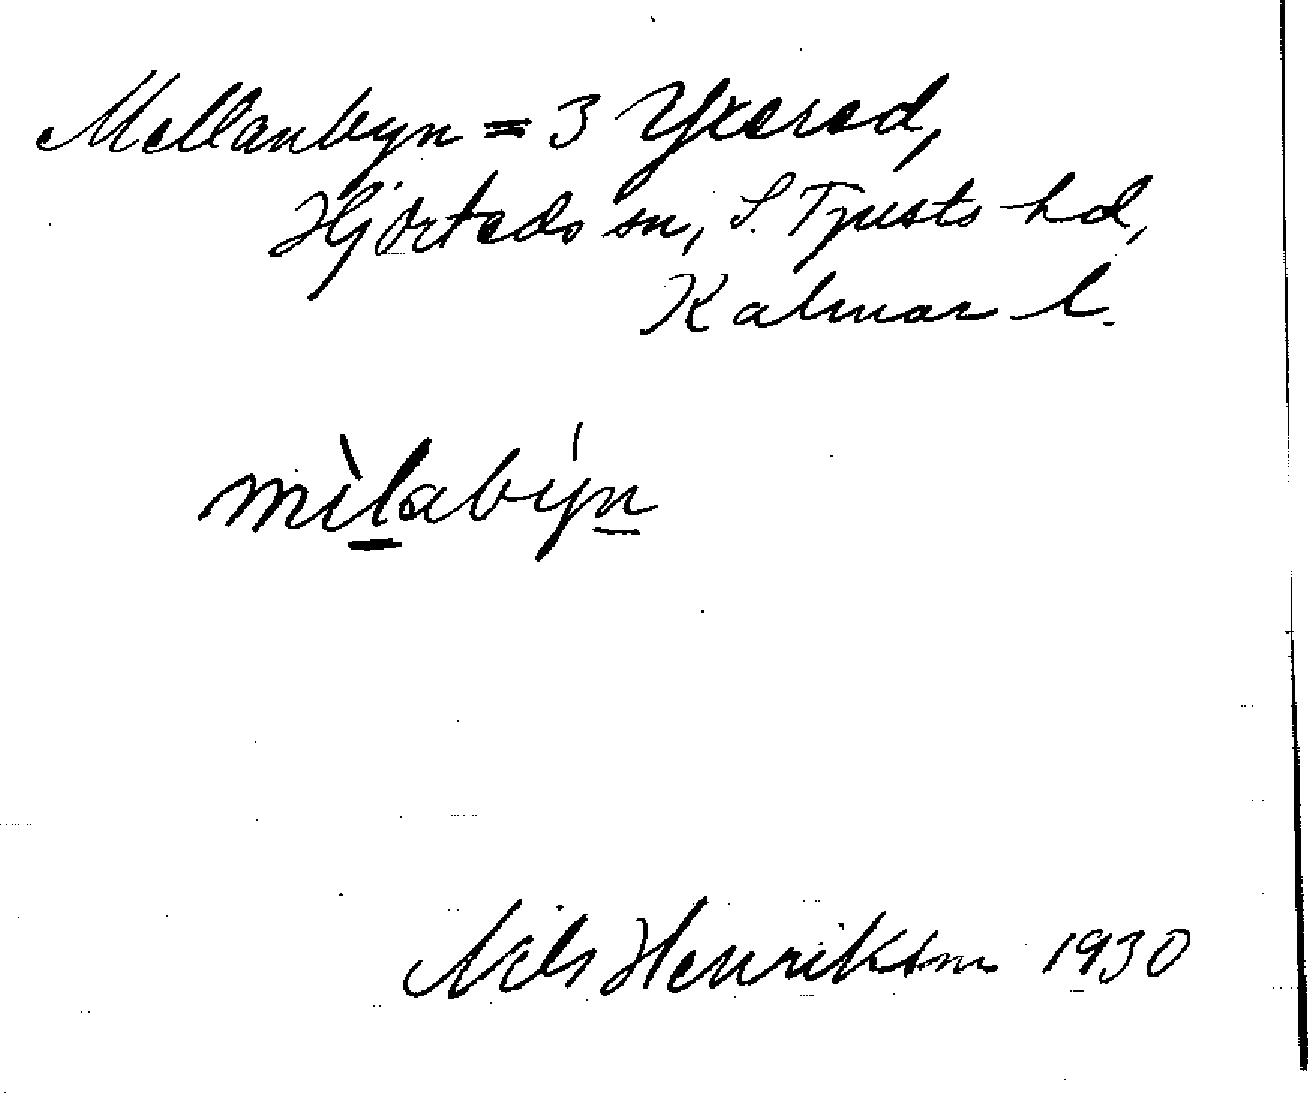 Mellanbyn = 3 Yxered,
Hjorteds sn, S. Tjusts hd,
Kalmar l.
mìlabýn
Nils Henrikson 1930